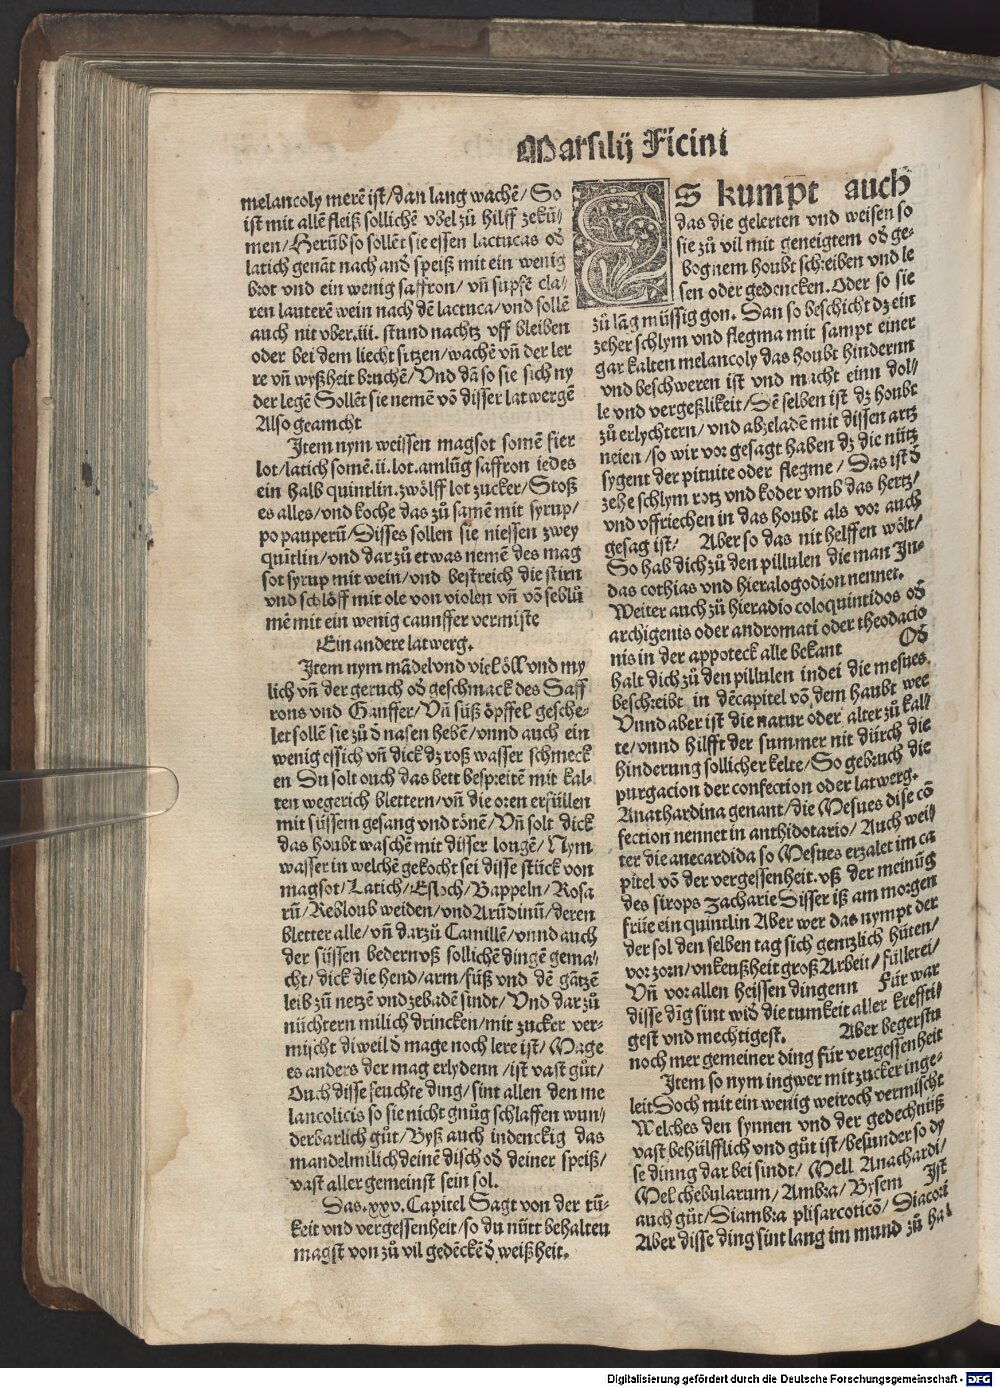 Marsilij Ficini
melancoly merē ist/dan lang wachē/So
ist mit allē fleiß sollichē vbel zů hilff zekū/
men/Herūb so sollēt sie essen lactucas od̄
latich genāt nach and̄ speiß mit ein wenig
brot vnd ein wenig saffron/vn̄ supfē cla/
ren lauterē wein nach dē lactuca/vnd sollē
auch nit vber.iii. stund nachtz vff bleiben
oder bei dem liecht sitzen/wachē vn̄ der ler
re vn̄ wyßheit bruchē/Vnd dā so sie sich ny
der legē Sollēt sie nemē vō disser latwergē
Also geamcht
Item nym weissen magsot somē fier
lot/latich somē.ii.lot.amlūg saffron iedes
ein halb quintlin.zwölff lot zucker/Stoß
es alles/vnd koche das zů samē mit syrup/
po pauperū/Disses sollen sie niessen zwey
quītlin/vnd dar zů etwas nemē des mag
sot syrup mit wein/vnd bestreich die stirn
vnd schlöff mit ole von violen vn̄ vō seblů
mē mit ein wenig cauffer vermiste
Ein andere latwerg.
Item nym mādel vnd viel öll vnd my
lich vn̄ der geruch od̄ geschmack des Saff
rons vnd Ganffer/Vn̄ süß öpffel gesche-
let sollē sie zů d̄ nasen hebē/vnnd auch ein
wenig essich vn̄ dick dz roß wasser schmeck
en Du solt ouch das bett bespreitē mit kal-
ten wegerich blettern/vn̄ die oren erfüllen
mit süssem gesang vnd tönē/Vn̄ solt dick
das houbt waschē mit disser lougē/Nym
wasser in welchē gekocht sei disse stück von
magsot/Latich/Esloch/Bappeln/Rosa
rū/Rebloub weiden/vnd Arūdinū/deren
bletter alle/vn̄ darzů Camillē/vnnd auch
der süssen beder vß sollichē dingē gema/
cht/dick die hend/arm/füß vnd dē gātzē
leib zů netzē vnd zebadē sindt/Vnd dar zů
nüchtern milich drincken/mit zucker ver-
mischt diweil d̄ mage noch lere ist/Mage
es anders der mag erlydenn/ist vast gůt/
Ouch disse feuchte ding/sint allen den me
lancolicis so sie nicht gnůg schlaffen wun/
derbarlich gůt/Byß auch indenckig das
mandelmilich deinē disch od̄ deiner speiß/
vast aller gemeinst sein sol.
Das.xxv.Capitel Sagt von der tū-
keit vnd vergessenheit/so du nütt behalten
magst von zů vil gedēckē d̄ weißheit.
ES kumpt auch
das die gelerten vnd weisen so
sie zů vil mit geneigtem od̄ ge-
bognem houbt schreiben vnd le
sen oder gedencken. Oder so sie
zů lāg müssig gon. Dan so beschicht dz ein
zeher schlym vnd flegma mit sampt einer
gar kalten melancoly das houbt hindernn
vnd beschweren ist vnd macht einn dol/
le vnd vergeßlikeit/Dē selben ist dz houbt
zů erlychtern/vnd abzeladē mit dissen artz
neien/so wir vor gesagt haben dz die nütz
sygent der pituite oder flegme/Das ist d̄
zehe schlym rotz vnd koder vmb das hertz/
vnd vffriechen in das houbt als vor auch
gesag ist/ Aber so das nit helffen wölt/
So hab dich zů den pillulen die man In-
das cothias vnd hieralogodion nennet.
Weiter auch zů hieradio coloquintidos od̄
archigenis oder andromati oder theodacio
nis in der appoteck alle bekant Od̄
halt dich zů den pillulen indei die mesues.
beschreibt in dē capitel vō dem haubt wee
Vnnd aber ist die natur oder alter zů kal/
te/vnnd hilfft der summer nit dürch die
hinderung sollicher kelte/So gebruch die
purgacion der confection oder latwerg.
Anathardina genant/die Mesues dise cō
fection nennet in anthidotario/Auch wei/
ter die anecardida so Mesues erzalet im ca
pitel vō der vergessenheit.vß der meinūg
des sirops zacharie Disser iß am morgen
früe ein quintlin Aber wer das nympt der
der sol den selben tag sich gentzlich hüten/
vor zorn/vnkeußheit groß Arbeit/fülleri/
Vn̄ vor allen heissen dingenn Für war
disse dīg sint wid̄ die tumkeit aller kreffti/
gest vnd mechtigest. Aber begerstu
noch mer gemeiner ding für vergessenheit
Item so nym ingwer mit zucker inge-
leit Doch mit ein wenig weiroch vermischt
Welches den synnen vnd der gedechnüß
vast behülfflich vnd gůt ist/besunder so dy
se dinng dar bei sindt/Mell Anachardi/
Mel chebularum/Ambra/Bysem Ist
auch gůt/Diambra plisarcoticō/Diacori
Aber disse ding sint lang im mund zů hal
Digitalisierung gefördert durch die Deutsche Forschungsgemeinschaft - DFG